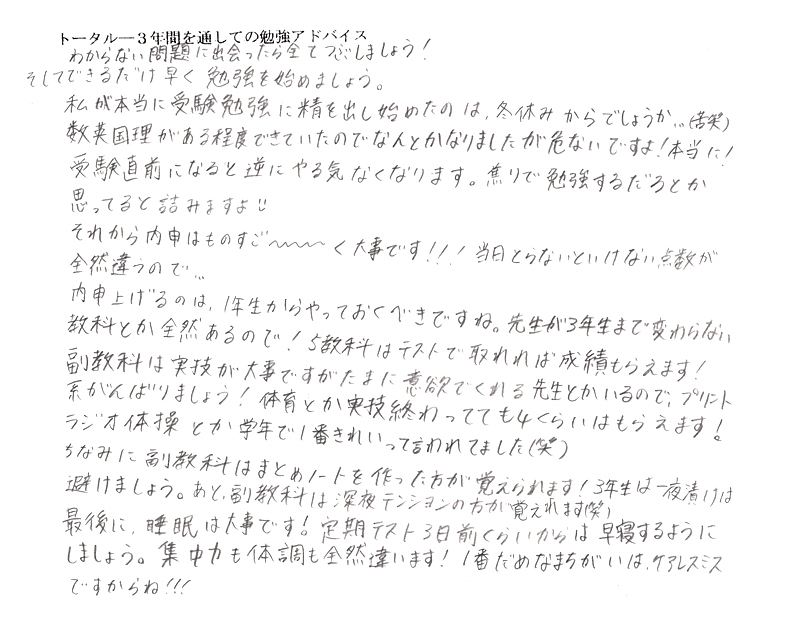 トータル―３年間を通しての勉強アドバイス
わからない問題に出会ったら全てつぶしましょう！
そしてできるだけ早く勉強を始めましょう。
私が本当に受験勉強に精を出し始めたのは、冬休みからでしょうか…(苦笑)
数英国理がある程度できていたのでなんとかなりましたが危ないですよ！本当に！
受験直前になると逆にやる気なくなります。焦りで勉強するだろとか
思ってると詰みますよ!!
それから内申はものすご〜〜〜〜く大事です！！！当日とらないといけない点数が
全然違うので…
内申上げるのは、1年生からやっておくべきですね。先生が3年生まで変わらない
教科とか全然あるので！5教科はテストで取れれば成績もらえます！
副教科は実技が大事ですがたまに意欲でくれる先生とかいるので、プリント
系がんばりましょう！体育とか実技終わってても4くらいはもらえます！
ラジオ体操とか学年で1番きれいって言われてました(笑)
ちなみに副教科はまとめノートを作った方が覚えられます！3年生は一夜漬けは
避けましょう。あと、副教科は深夜テンションの方が覚えれます(笑)
最後に、睡眠は大事です！定期テスト3日前くらいからは早寝するように
しましょう。集中力も体調も全然違います！1番だめなまちがいは、ケアレスミス
ですからね!!!